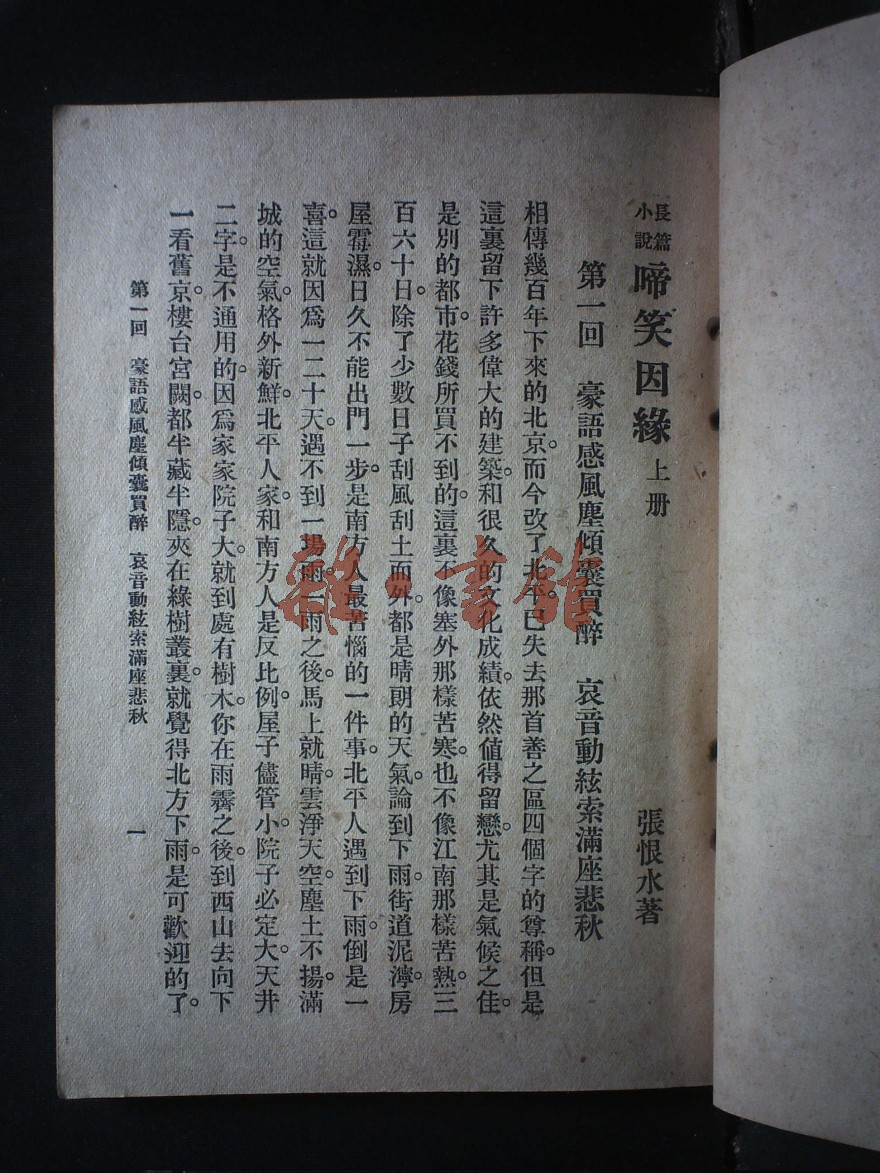 長篇小說 啼笑因緣 上册 張恨水著
第一回 豪語感風塵傾囊買醉 哀音動絃索滿座悲秋
相傳幾百年下來的北京。而今改了北平。已失去那首善之區四個字的尊稱。但是
這裏留下許多偉大的建築。和很久的文化成績。依然值得留戀。尤其是氣候之佳。
是別的都市。花錢所買不到的。這裏不像塞外那樣苦寒。也不像江南那樣苦熱。三
百六十日。除了少數日子刮風刮土而外。都是晴朗的天氣。論到下雨。街道泥濘。房
屋霉濕。日久不能出門一步。是南方人最苦惱的一件事。北平人遇到下雨。倒是一
喜。這就因爲一二十天。遇不到一場雨。一雨之後。馬上就晴。雲淨天空。塵土不揚。滿
城的空氣。格外新鮮。北平人家。和南方人是反比例。屋子儘管小。院子必定大。天井
二字。是不通用的。因爲家家院子大。就到處有樹木。你在雨霽之後。到西山去向下
一看舊京。樓台宮闕。都半藏半隱。夾在綠樹叢裏。就覺得北方下雨。是可歡迎的了。
第一回 豪語感風塵傾囊買醉 哀音動絃索滿座悲秋 一
雜·書館